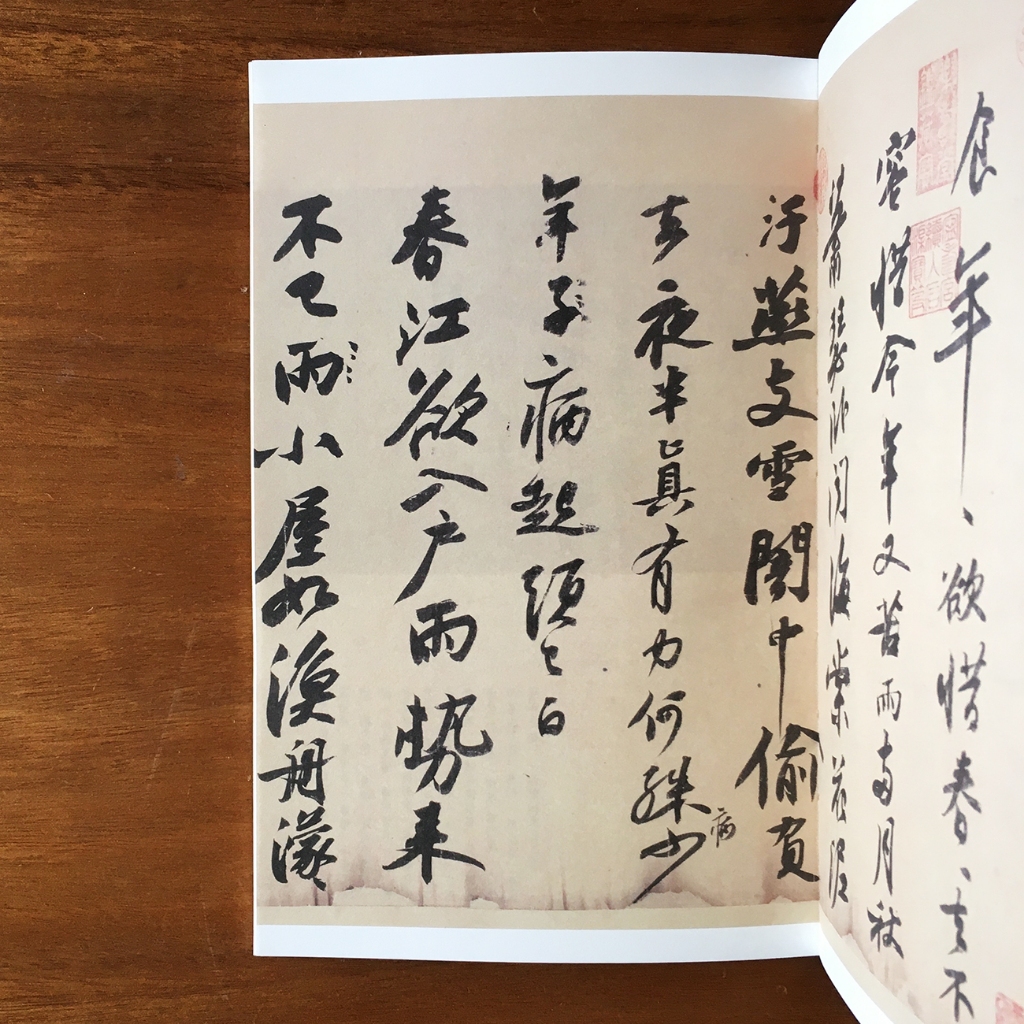 食年〻欲惜春〻去不
容惜今年又苦雨兩月秋
蕭瑟臥聞海棠花泥
汙燕支雪闇中偷負
去夜半真有力何殊少
病
年子病起須已白
春江欲入戶雨勢來
不已雨小屋如漁舟濛〻